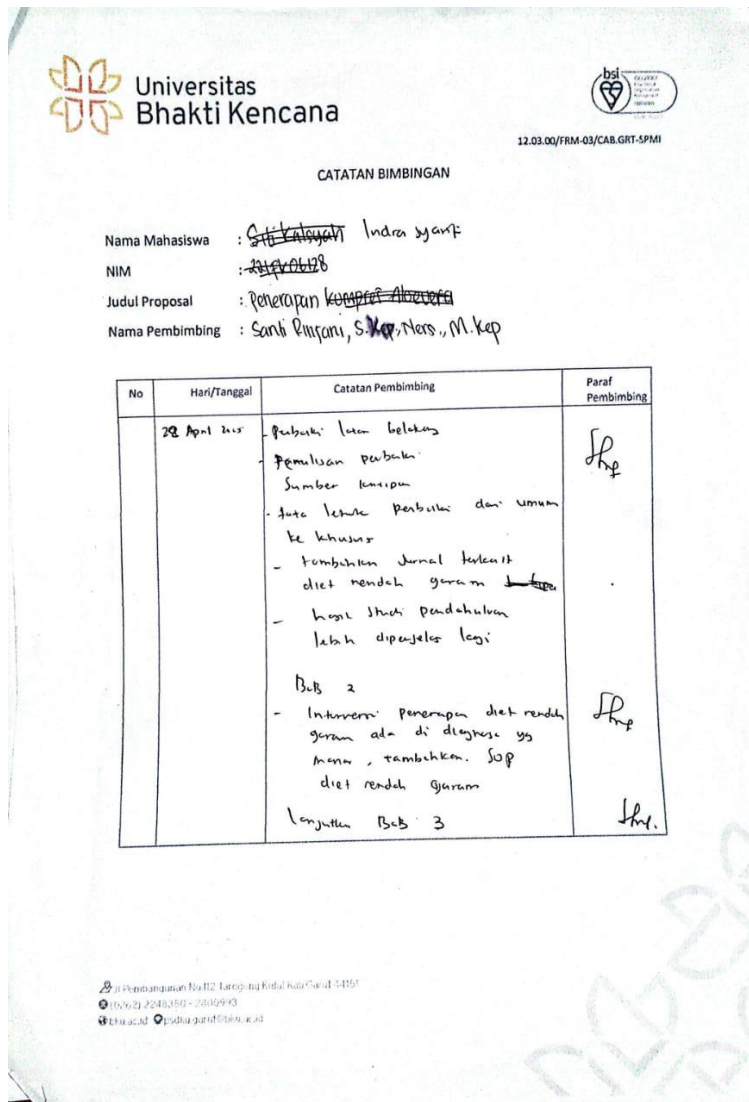 Universitas
Bhakti Kencana
bsi
12.03.00/FRM-03/CAB.GRT-SPMI
CATATAN BIMBINGAN
Nama Mahasiswa : Siti Kalsyah Indra Syam
NIM :
Judul Proposal : Penerapan Kompres Aloevera
Nama Pembimbing : Santi Rinjani, S.Kep., Ners., M.Kep
No Hari/Tanggal Catatan Pembimbing Paraf Pembimbing
28 April - Perbaiki latar belakang
- Penulisan perbaiki
Sumber
- perbaiki dari umum
ke khusus
- tambahkan Jurnal terkait
diet rendah garam
- hasil studi pendahuluan
lebih diperjelas lagi
Bab 2
- Intervensi penerapan diet rendah
garam ada di diagnosa yg
mana, tambahkan. SOP
diet rendah garam
lanjutkan Bab 3
Jl Pembangunan No.112 Tarogong Kidul Kab Garut 44151
(0262) 2248380 - 2800993
bku.ac.id psdku.garut@bku.ac.id